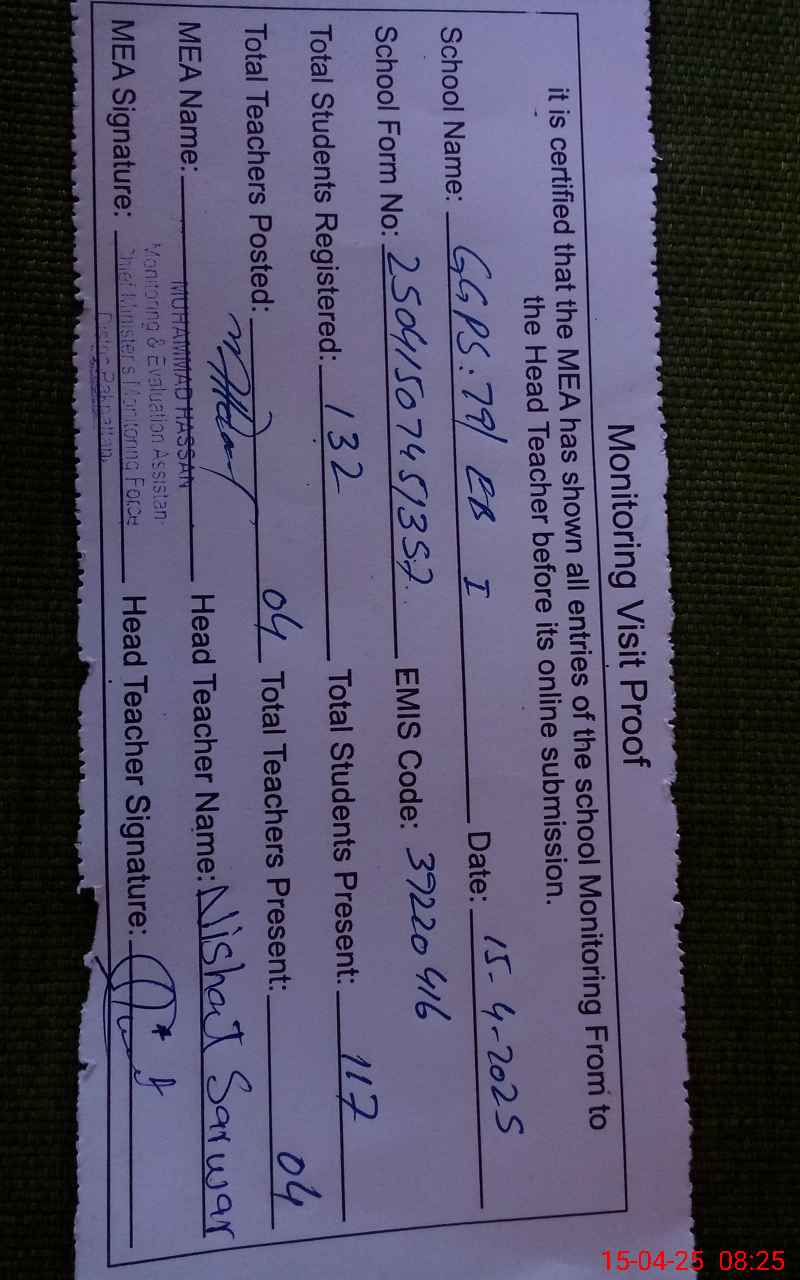 Monitoring Visit Proof
it is certified that the MEA has shown all entries of the school Monitoring From to
the Head Teacher before its online submission.
School Name: GGPS. 79/ EB I Date: 15-4-2025
School Form No: 25041507451357 EMIS Code: 39220416
Total Students Registered: 132 Total Students Present: 117
Total Teachers Posted: 04 Total Teachers Present: 04
MEA Name: MUHAMMAD HASSAN Head Teacher Name: Nishat Sarwar
Monitoring & Evaluation Assistan
MEA Signature: Chief Minister's Monitoring Force Head Teacher Signature:
Pakpattan
15-04-25 08:25